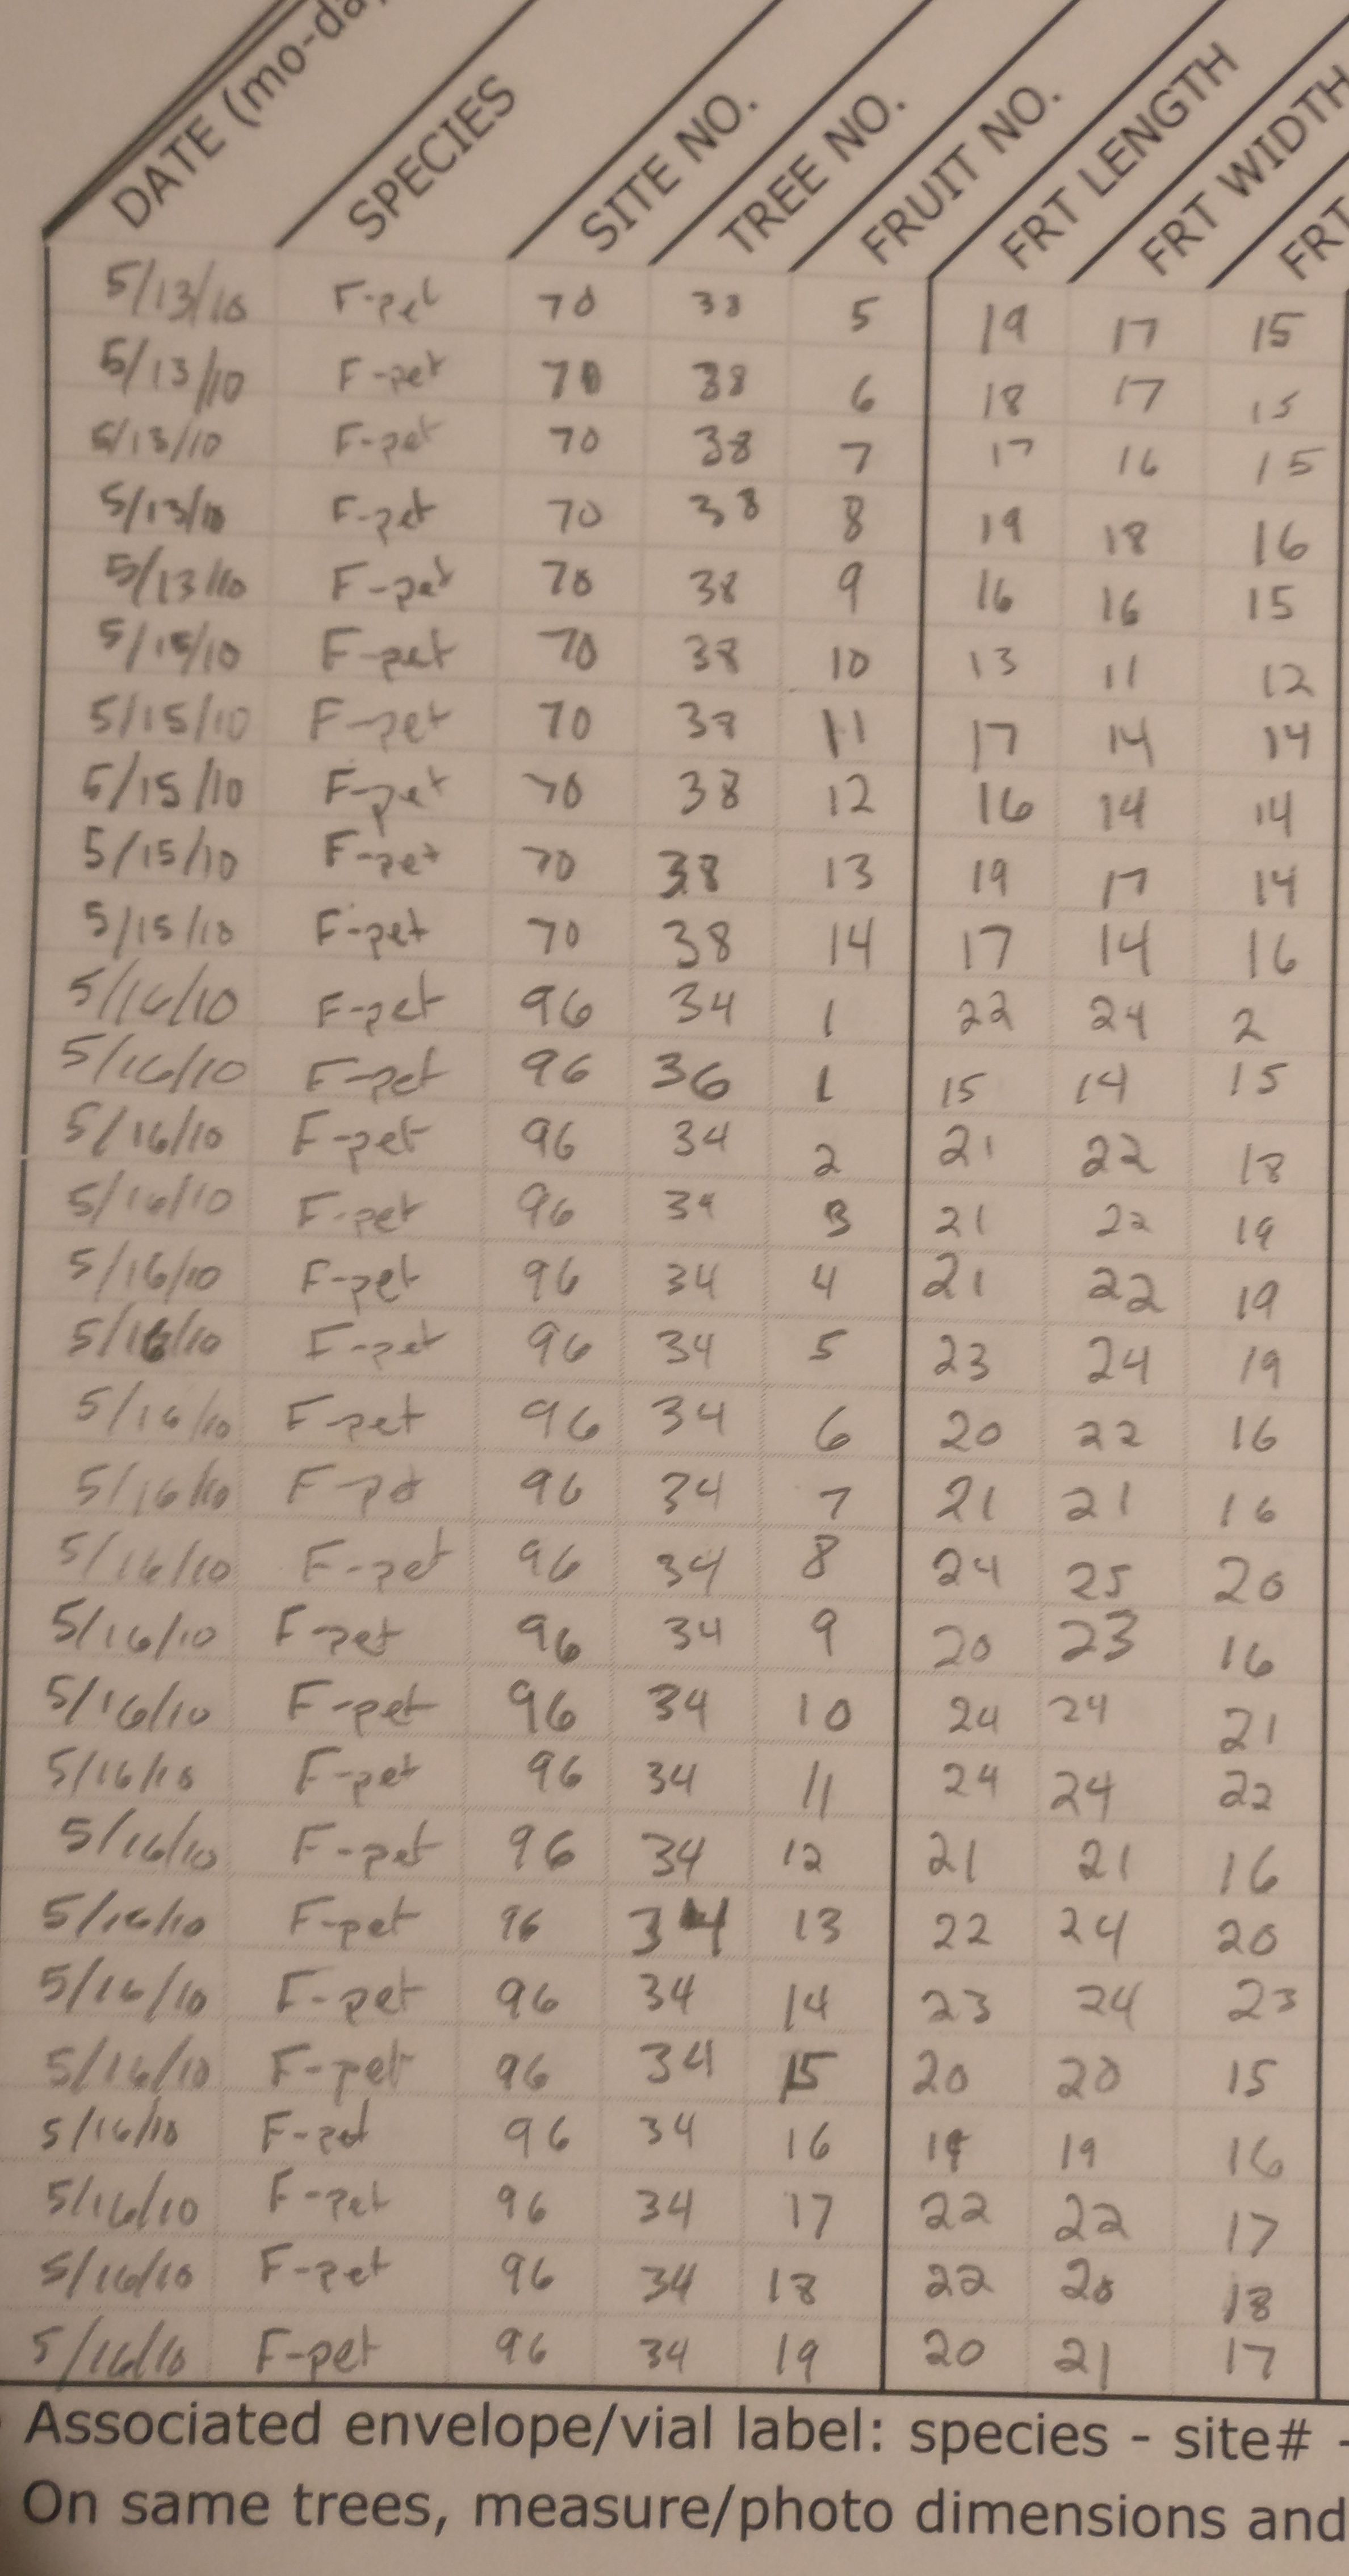 DATE (mo-da SPECIES SITE NO. TREE NO. FRUIT NO. FRT LENGTH FRT WIDTH FRT
5/13/10 F-pet 70 38 5 19 17 15
5/13/10 F-pet 70 38 6 18 17 15
5/13/10 F-pet 70 38 7 17 16 15
5/13/10 F-pet 70 38 8 19 18 16
5/13/10 F-pet 70 38 9 16 16 15
5/15/10 F-pet 70 38 10 13 11 12
5/15/10 F-pet 70 38 11 17 14 14
5/15/10 F-pet 70 38 12 16 14 14
5/15/10 F-pet 70 38 13 19 17 14
5/15/10 F-pet 70 38 14 17 14 16
5/16/10 F-pet 96 34 1 22 24 2
5/16/10 F-pet 96 36 1 15 14 15
5/16/10 F-pet 96 34 2 21 22 18
5/16/10 F-pet 96 34 3 21 22 19
5/16/10 F-pet 96 34 4 21 22 19
5/16/10 F-pet 96 34 5 23 24 19
5/16/10 F-pet 96 34 6 20 22 16
5/16/10 F-pet 96 34 7 21 21 16
5/16/10 F-pet 96 34 8 24 25 20
5/16/10 F-pet 96 34 9 20 23 16
5/16/10 F-pet 96 34 10 24 24 21
5/16/10 F-pet 96 34 11 24 24 22
5/16/10 F-pet 96 34 12 21 21 16
5/16/10 F-pet 96 34 13 22 24 20
5/16/10 F-pet 96 34 14 23 24 23
5/16/10 F-pet 96 34 15 20 20 15
5/16/10 F-pet 96 34 16 19 19 16
5/16/10 F-pet 96 34 17 22 22 17
5/16/10 F-pet 96 34 18 22 20 18
5/16/10 F-pet 96 34 19 20 21 17
Associated envelope/vial label: species - site# -
On same trees, measure/photo dimensions and